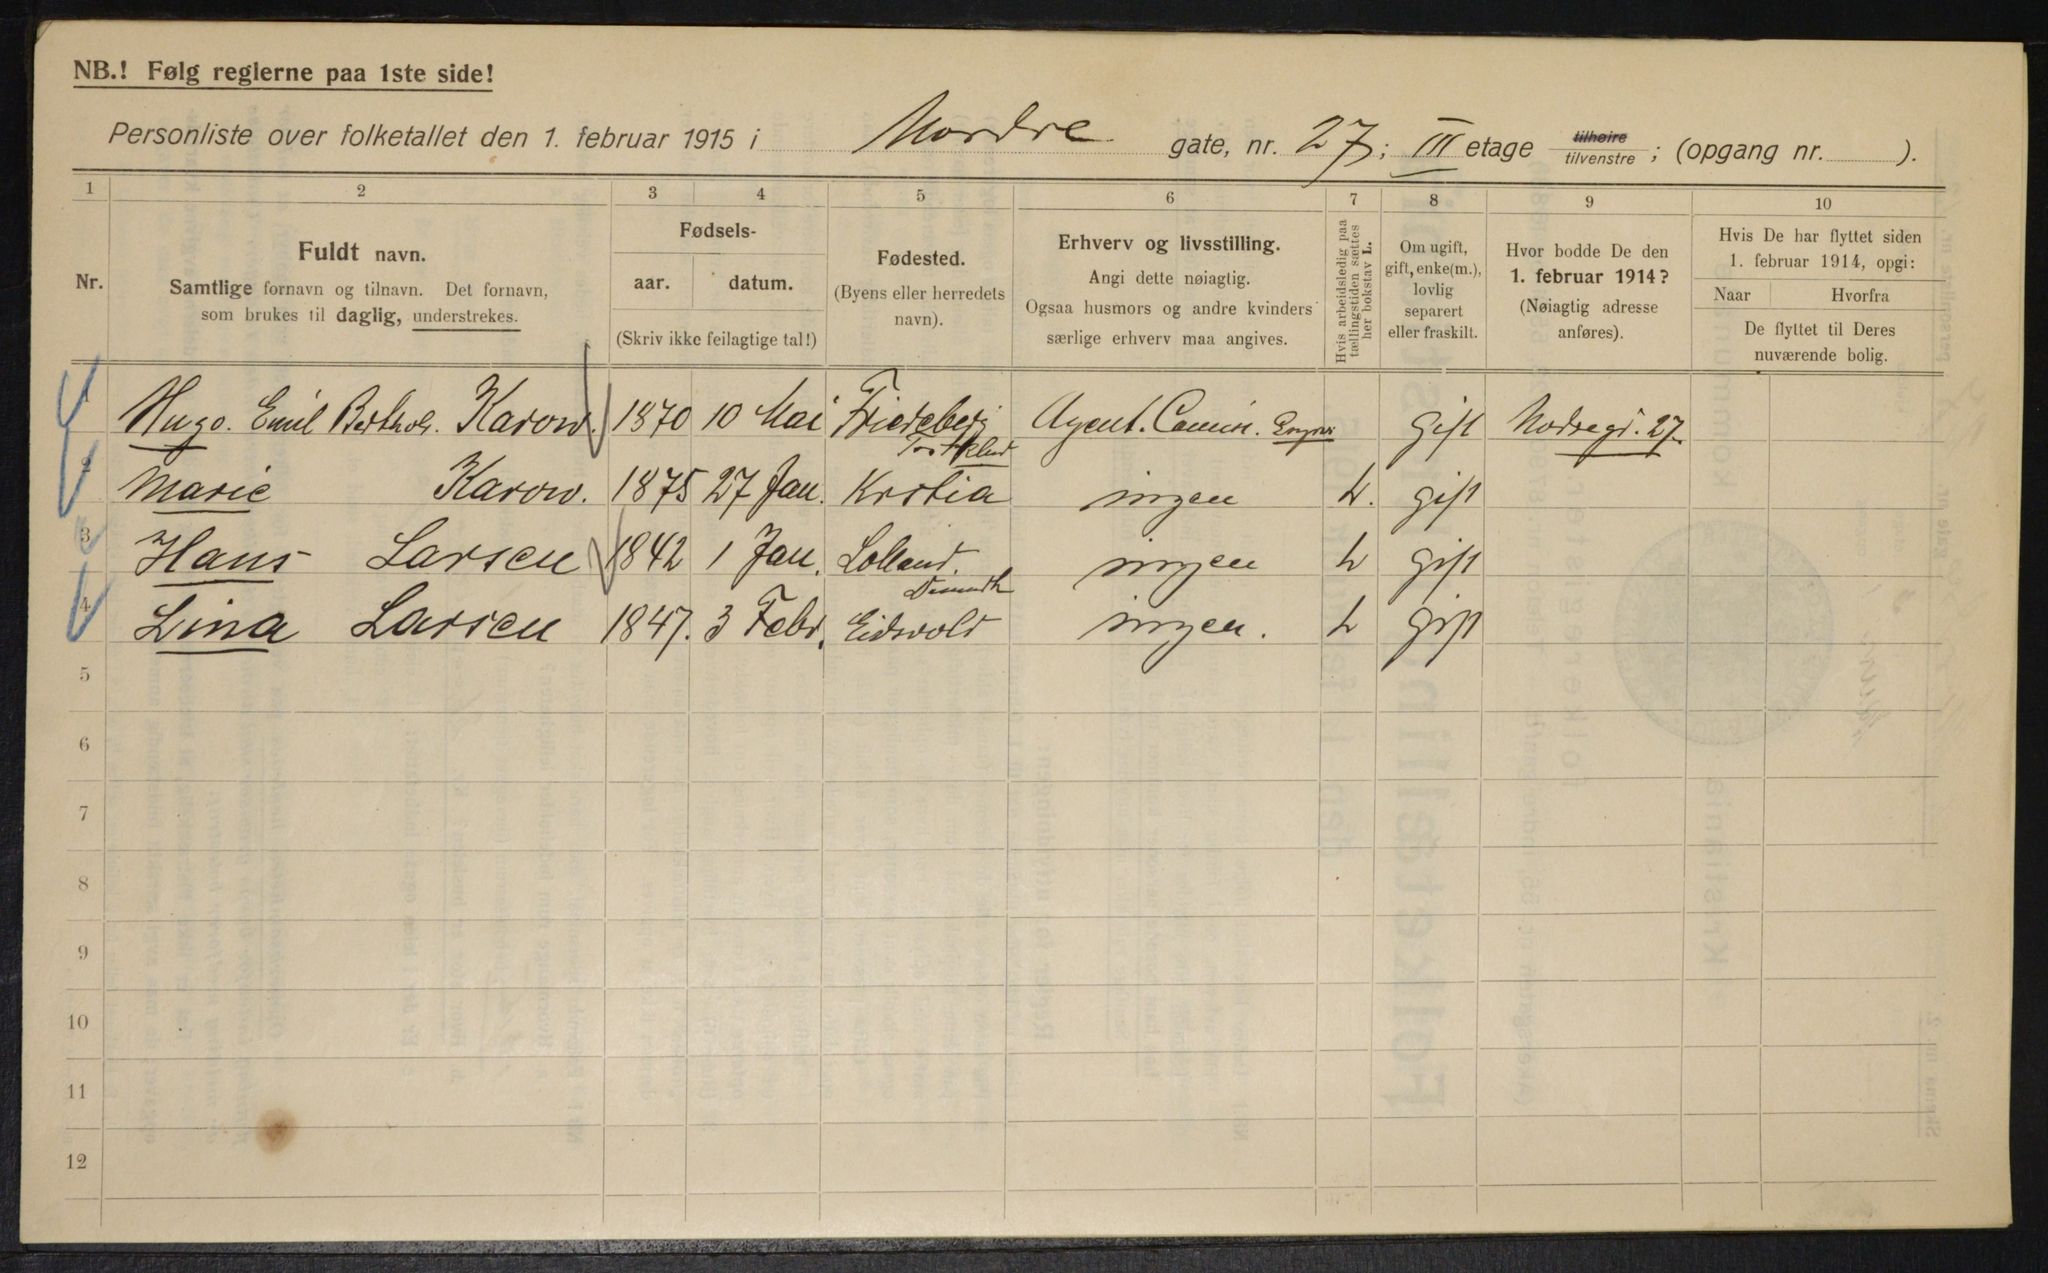 NB.! Følg reglerne paa 1ste side!
Personliste over folketallet den 1. februar 1915 i Nordre gate, nr. 27; III etage tilhøire tilvenstre; (opgang nr. ).
1 2 3 4 5 6 7 8 9 10
Nr.
Fuldt navn.
Samtlige fornavn og tilnavn. Det fornavn,
som brukes til daglig, understrekes.
Fødsels-
aar. datum.
(Skriv ikke feilagtige tal!)
Fødested.
(Byens eller herredets
navn).
Erhverv og livsstilling.
Angi dette nøiagtig.
Ogsaa husmors og andre kvinders
særlige erhverv maa angives.
Hvis arbeidsledig paa
tællingstiden sættes
her bokstav L.
Om ugift,
gift, enke(m.),
lovlig
separert
eller fraskilt.
Hvor bodde De den
1. februar 1914?
(Nøiagtig adresse
anføres).
Hvis De har flyttet siden
1. februar 1914, opgi:
Naar Hvorfra
De flyttet til Deres
nuværende bolig.
1 Hugo. Emil Berthol. Karow. 1870 10 Mai Friedeberg Agent. Comm. gift Nordregt. 27.
2 Marie Karow. 1875 27 Jan. Krstia ingen L. gift
3 Hans Larsen 1842 1 Jan. Lolland. ingen L gift
4 Lina Larsen 1847. 3 Febr. Eidsvold ingen. L gift
5
6
7
8
9
10
11
12